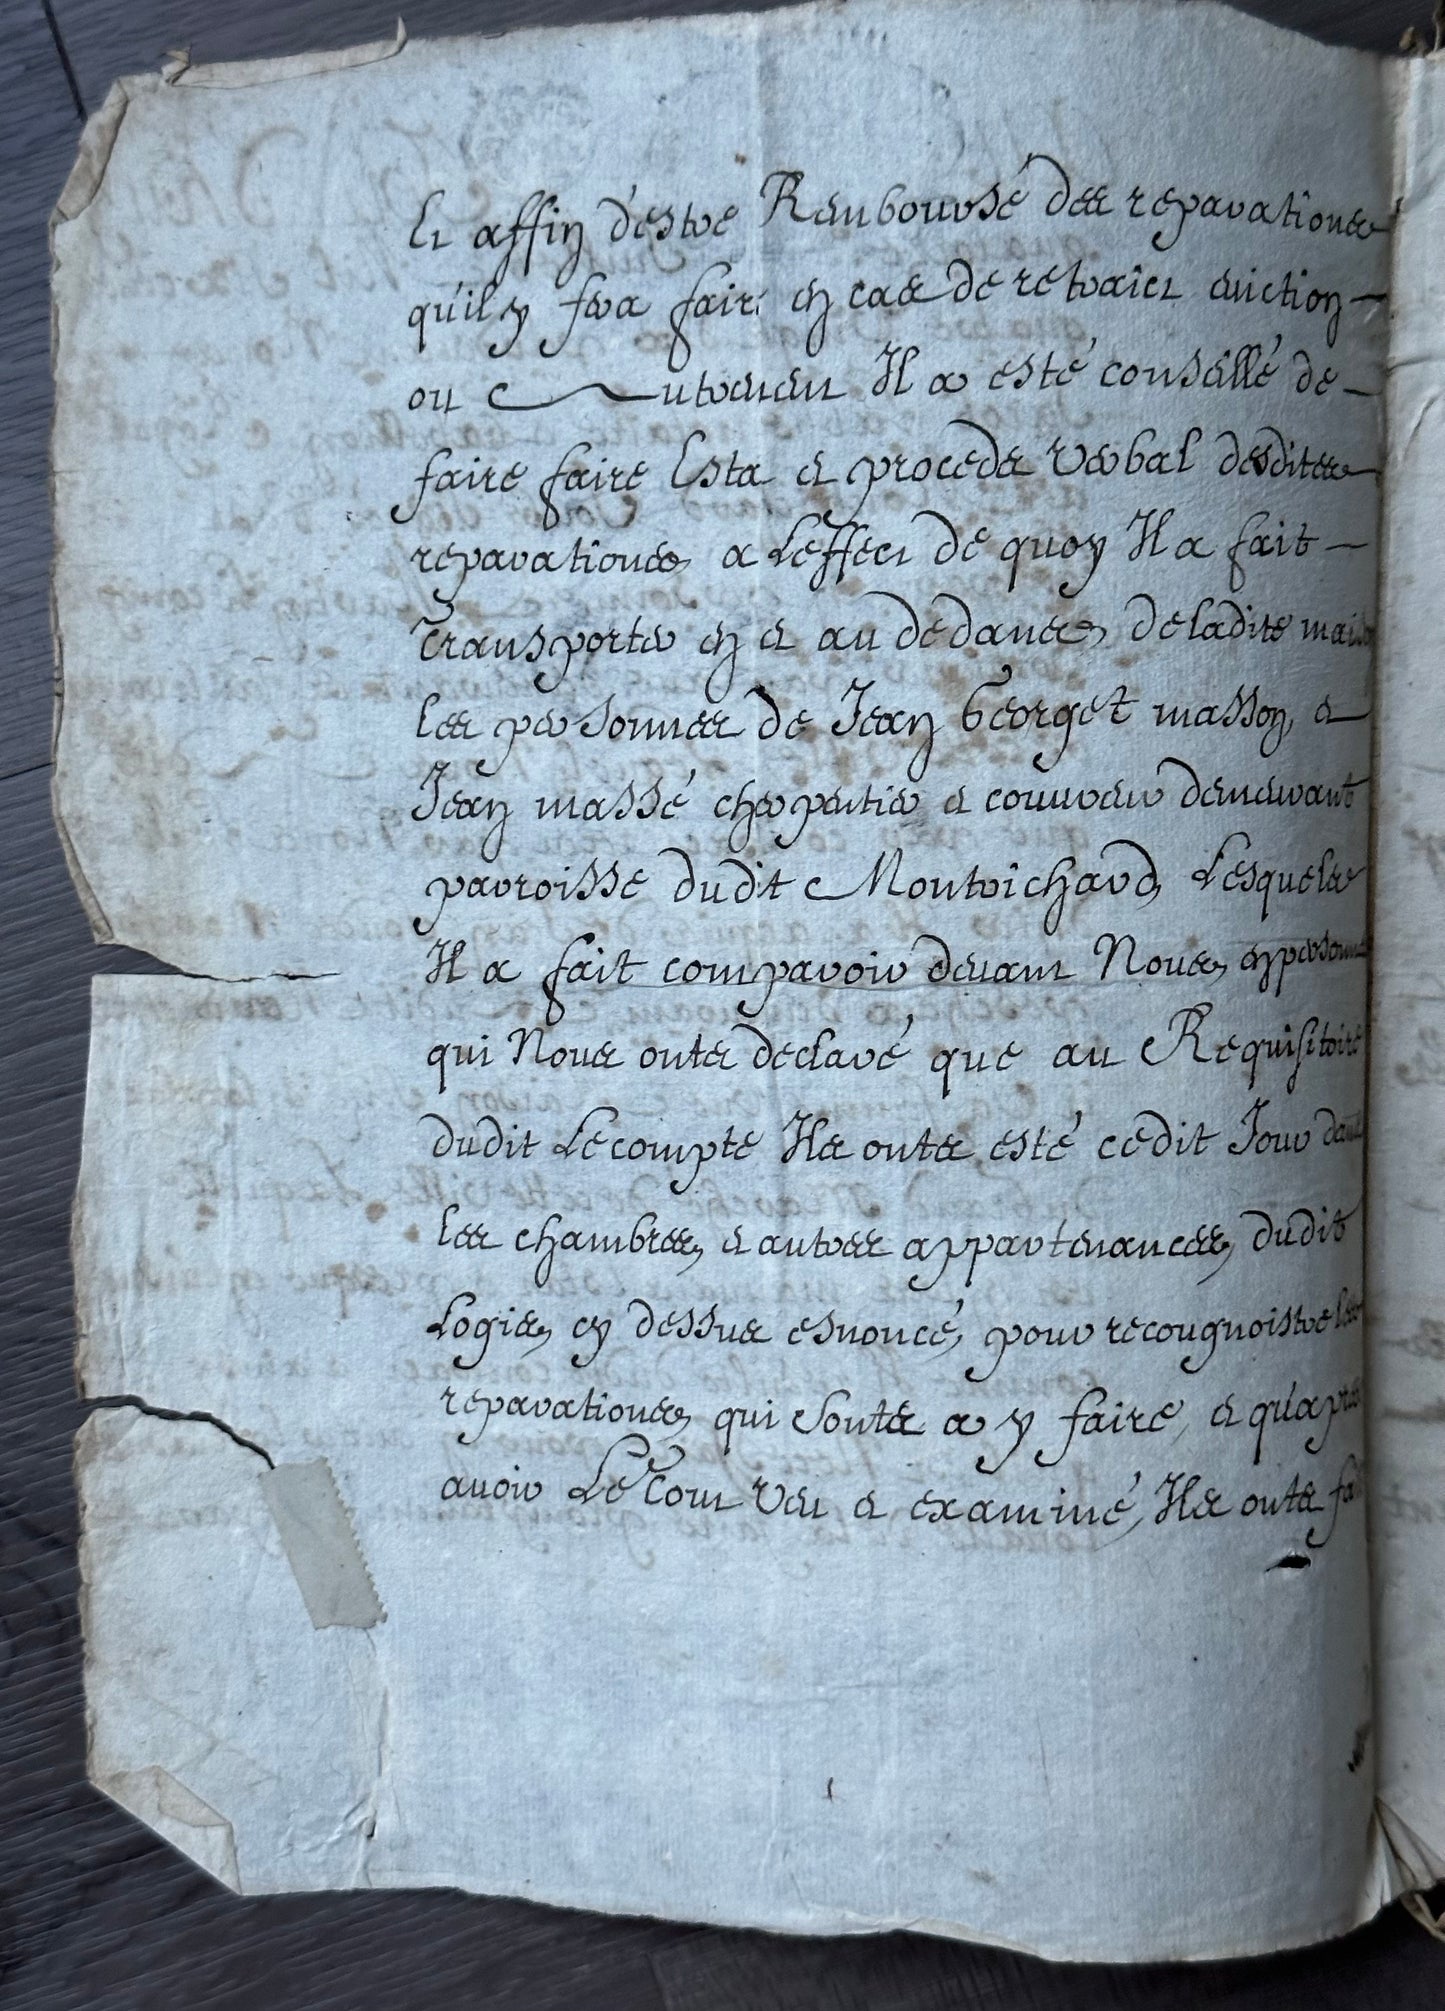 Et affin d'estre Remboursé des reparations
qu'il y fera faire en cas de retraict eviction
ou Autrement Il a esté conseillé de
faire faire Estat et procedz verbal desdites
reparations a L'effect de quoy Il a fait
Transporter en et au dedans de ladite maison
les personnes de Jean Georget masson, et
Jean massé cherpentier et couvreur demeurant
parroisse dudit Montrichard, Lesquels
Il a fait comparoir devant Nous, en personne
qui Nous onts declaré que au Requisitoire
dudit Lecompte Ils onts esté cedit Jour dans
les chambres, et autres appartenances, dudit
Logis, cy dessus esnoncé, pour recougnoistre les
reparations, qui sonts a y faire, et qu'apres
avoir Le Tout veu et examiné, Ils onts fait